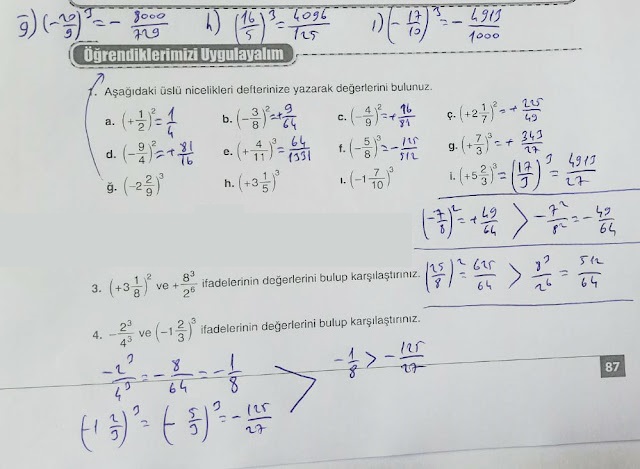 ğ) (-20/9)³ = - 8000/729   h) (16/5)³ = 4096/125   ı) (- 17/10)³ = - 4913/1000
Öğrendiklerimizi Uygulayalım
1. Aşağıdaki üslü nicelikleri defterinize yazarak değerlerini bulunuz.
a. (+1/2)² = 1/4   b. (-3/8)² = +9/64   c. (-4/9)² = +16/81   ç. (+2 1/7)² = + 225/49
d. (-9/4)² = + 81/16   e. (+4/11)³ = 64/1331   f. (-5/8)³ = - 125/512   g. (+7/3)³ = + 343/27
ğ. (-2 2/9)³   h. (+3 1/5)³   ı. (-1 7/10)³   i. (+5 2/3)³ = (17/3)³ = 4913/27
(-7/8)² = +49/64 > - 7²/8² = - 49/64
3. (+3 1/8)² ve + 8³/2⁶ ifadelerinin doğerlerini bulup karşılaştırınız. (25/8)² = 625/64 > 8³/2⁶ = 512/64
4. - 2³/4³ ve (-1 2/3)³ ifadelerinin değerlerini bulup karşılaştırınız.
-2³/4³ = - 8/64 = - 1/8   - 1/8 > - 125/27
(-1 2/3)³ = (- 5/3)³ = - 125/27
87